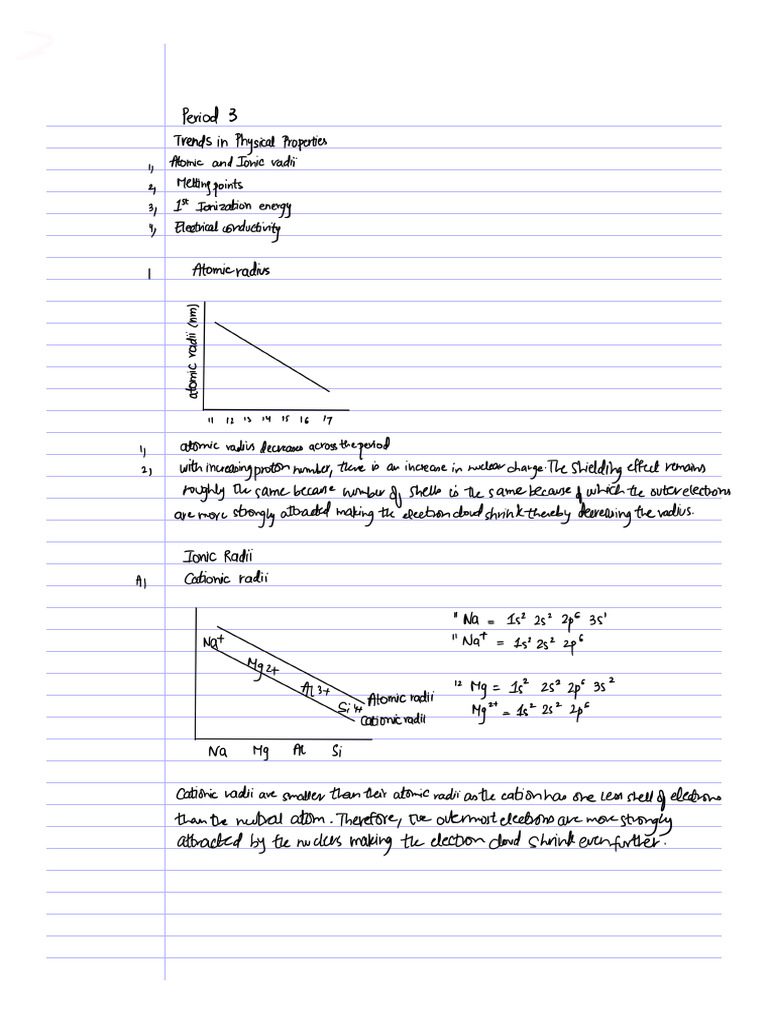 Period 3
Trends in Physical Properties
1, Atomic and Ionic radii
2, Melting points
3, 1st Ionization energy
4, Electrical conductivity
1 Atomic radius
atomic radii (nm)
11 12 13 14 15 16 17
1, atomic radius decreases across the period
2, with increasing proton number, there is an increase in nuclear charge. The shielding effect remains
roughly the same because number of shells is the same because of which the outer electrons
are more strongly attracted making the electron cloud shrink thereby decreasing the radius.
Ionic Radii
A, Cationic radii
¹¹Na = 1s² 2s² 2p⁶ 3s¹
¹¹Na⁺ = 1s² 2s² 2p⁶
¹²Mg = 1s² 2s² 2p⁶ 3s²
Mg²⁺ = 1s² 2s² 2p⁶
Na⁺
Mg²⁺
Al³⁺
Si⁴⁺
Atomic radii
Cationic radii
Na Mg Al Si
Cationic radii are smaller than their atomic radii as the cation has one less shell of electrons
than the neutral atom. Therefore, the outermost electrons are more strongly
attracted by the nucleus making the electron cloud shrink even further.